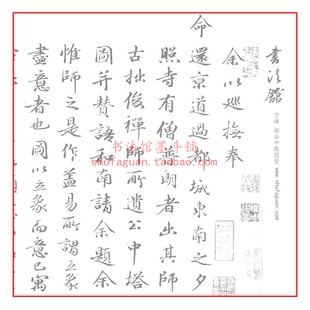 書法館
www.shufaguan.com
余以巡撫奉
命還京道過都城東南之夕
照寺有僧普朗者出其師
古拙俊禪師所遺公中塔
圖并賛語和南請余題余
惟師之是作蓋易所謂立象
盡意者也圖以立象而意已寓
书法馆墨斗城
shufaguan.taobao.com